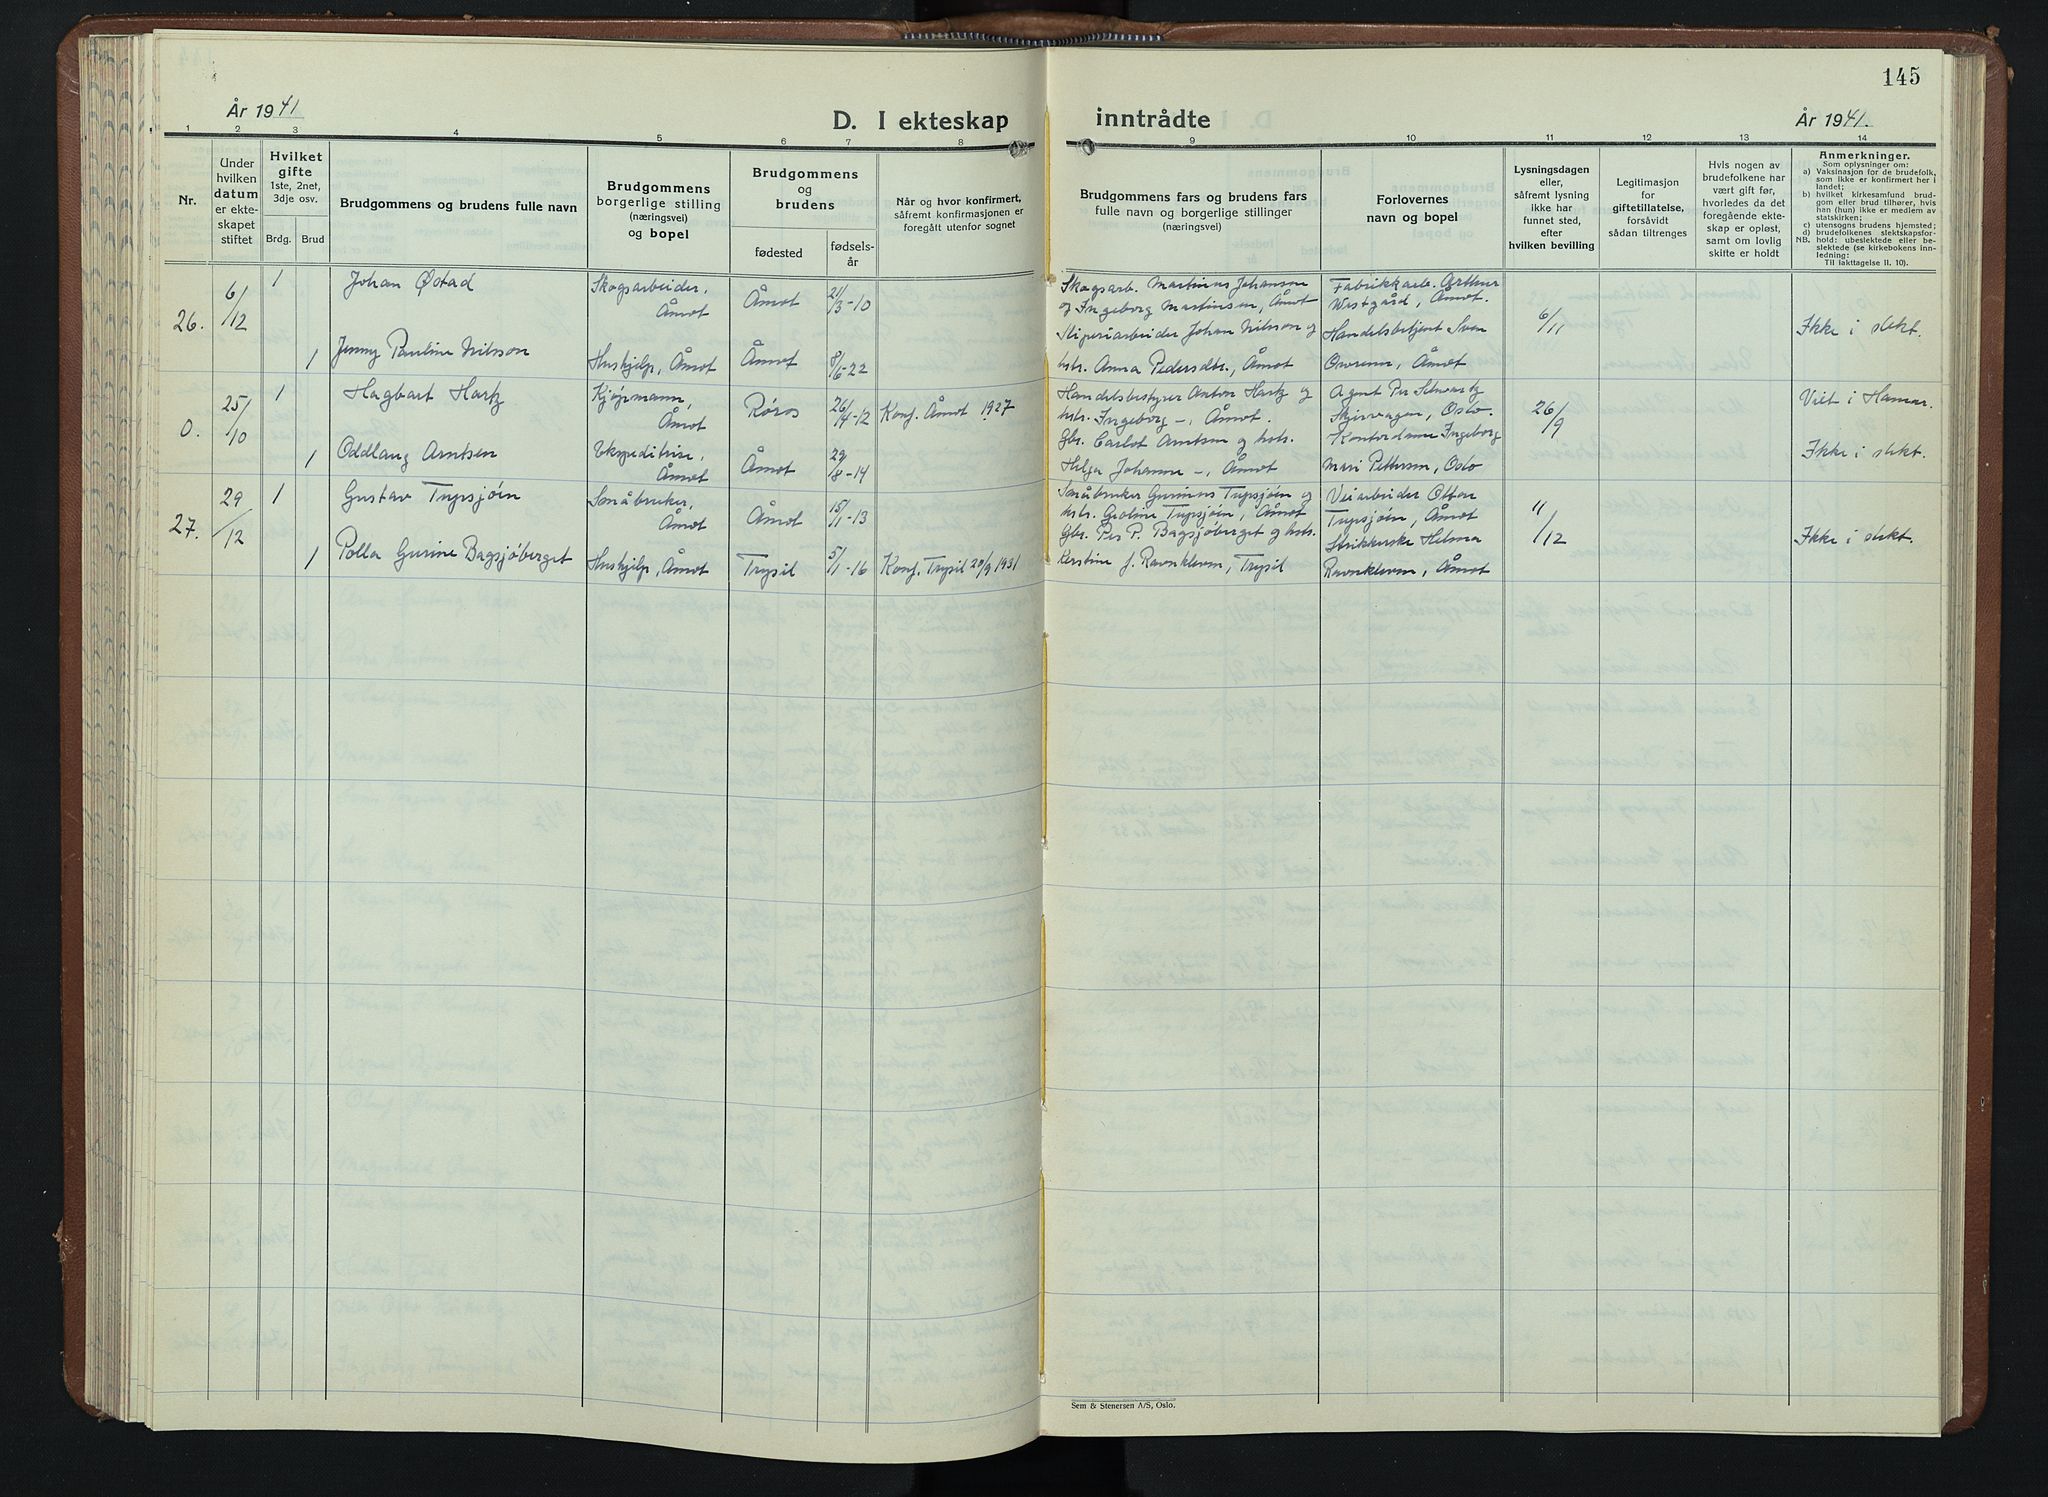 145
År 1941
D. I ekteskap inntrådte
År 1941.
1 2 3 4 5 6 7 8 9 10 11 12 13 14
Nr.
Under
hvilken
datum
er ekte-
skapet
stiftet
Hvilket
gifte
1ste, 2net,
3dje osv.
Brdg. Brud
Brudgommens og brudens fulle navn
Brudgommens
borgerlige stilling
(næringsvei)
og bopel
Brudgommens
og
brudens
fødested
fødsels-
år
Når og hvor konfirmert,
såfremt konfirmasjonen er
foregått utenfor sognet
Brudgommens fars og brudens fars
fulle navn og borgerlige stillinger
(næringsvei)
Forlovernes
navn og bopel
Lysningsdagen
eller,
såfremt lysning
ikke har
funnet sted,
efter
hvilken bevilling
Legitimasjon
for
giftetillatelse,
forsåvidt
sådan tiltrenges
Hvis nogen av
brudefolkene har
vært gift før,
hvorledes da det
foregående ekte-
skap er opløst,
samt om lovlig
skifte er holdt
Anmerkninger.
Som oplysninger om:
a) Vaksinasjon for de brudefolk,
som ikke er konfirmert her i
landet;
b) hvilket kirkesamfund brud-
gom eller brud tilhører, hvis
han (hun) ikke er medlem av
statskirken;
c) utensogns brudens hjemsted;
d) brudefolkenes slektskapsfor-
NB. hold: ubeslektede eller be-
slektede (se kirkebokens inn-
ledning:
Til iakttagelse II. 10).
26. 6/12 1 Johan Østad Skogsarbeider, Åmot Åmot 21/3-10
Skogsarb. Martinus Johansen
og Ingeborg Martinsen, Åmot
Fabrikkarb. Arthur
Westgård, Åmot.
6/11 Ikke i slekt.
1 Jenny Pauline Nilsson Hushjelp, Åmot Åmot 8/6-22
Sliperiarbeider Johan Nilsson og
hstr. Anna Pedersdtr., Åmot
Handelsbetjent Sven
Åmot
0. 25/10 1 Hagbart Hartz Kjøpmann, Åmot Røros 26/4-12 Konf. Åmot 1927
Handelsbestyrer Anton Hartz og
hstr. Ingeborg -, Åmot.
Agent Per Schwartz
Oslo.
26/9 Viet i Hamar.
1 Oddlaug Arntsen Ekspeditrise, Åmot Åmot 29/8-14
Gbr. Carlot Arntsen og hstr.
Helga Johanne -, Åmot
Kontordame Ingeborg
Mari Pettersen, Oslo
Ikke i slekt.
27. 29/12 1 Gustav Tupsjøin Småbruker, Åmot Åmot 15/1-13
Småbruker Gunines Tupsjøin og
hstr. Tupsjøin, Åmot
Veiarbeider Ottar
Tupsjøin, Åmot
11/12 Ikke i slekt.
1 Polla Gurine Bagsjøberget Hushjelp, Åmot Trysil 5/1-16 Konf. Trysil 20/9 1931
Gbr. Per P. Bagsjøberget og hstr.
Kerstine J. Ravnkleven, Trysil
Strikkerske Helma
Ravnkleven, Åmot
Sem & Stenersen A/S, Oslo.